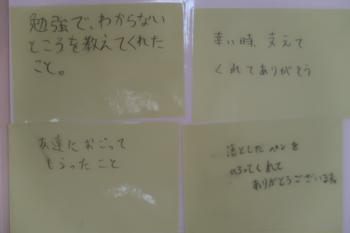 勉強で、わからない
ところを教えてくれた
こと。
辛い時、支えて
くれてありがとう
友達におごって
もらったこと
落としたペンを
ひろってくれて
ありがとうございます。